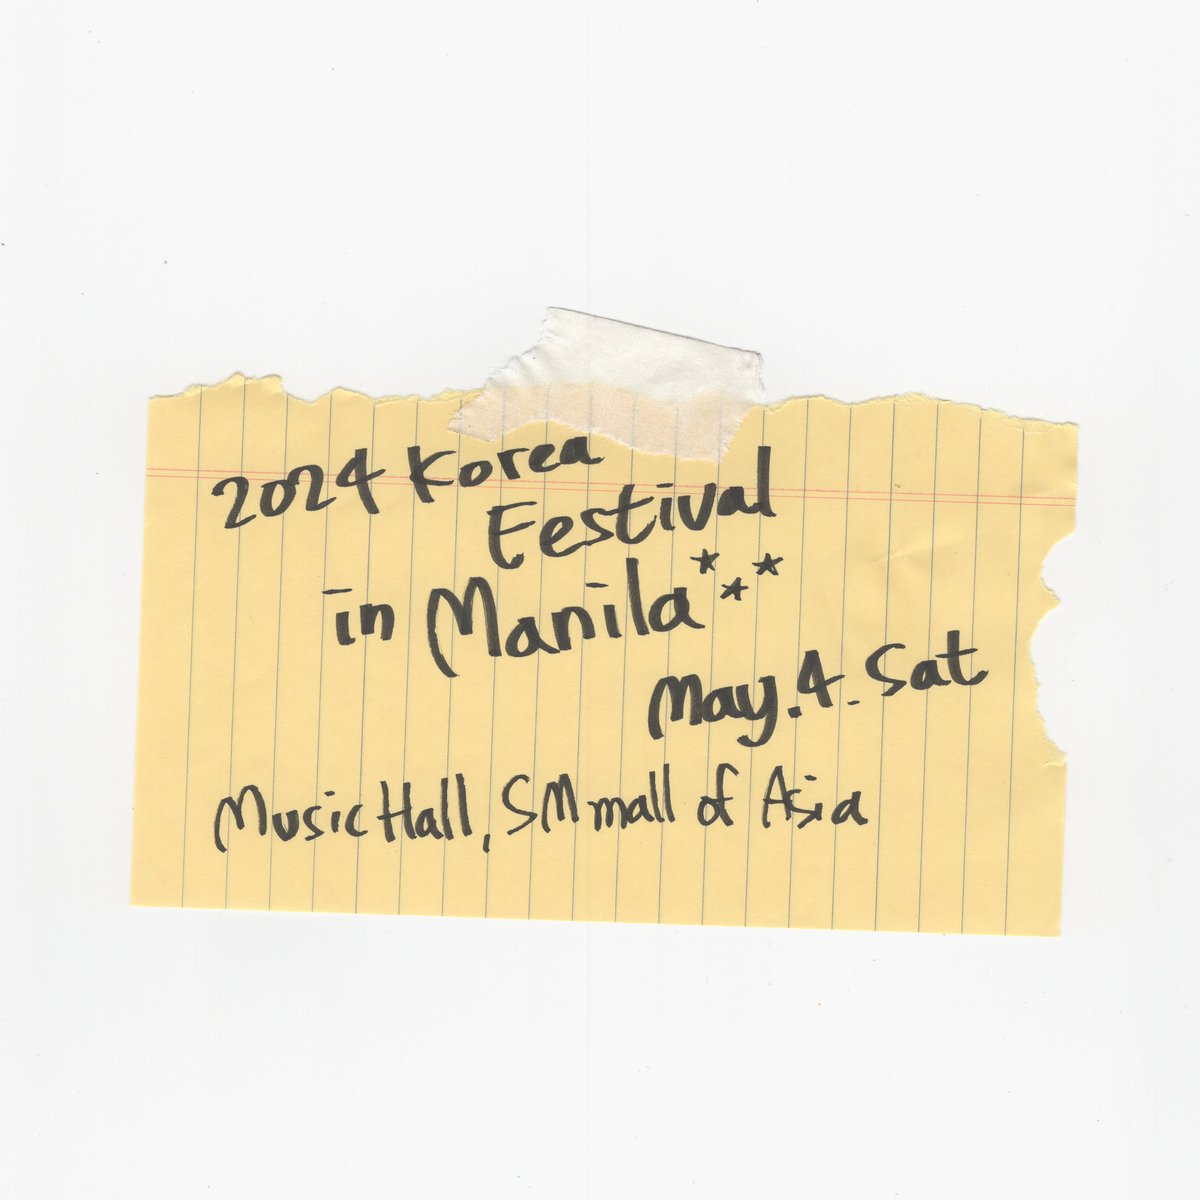 2024 Korea
Festival
in Manila
May. 4. Sat
Music Hall, SM mall of Asia